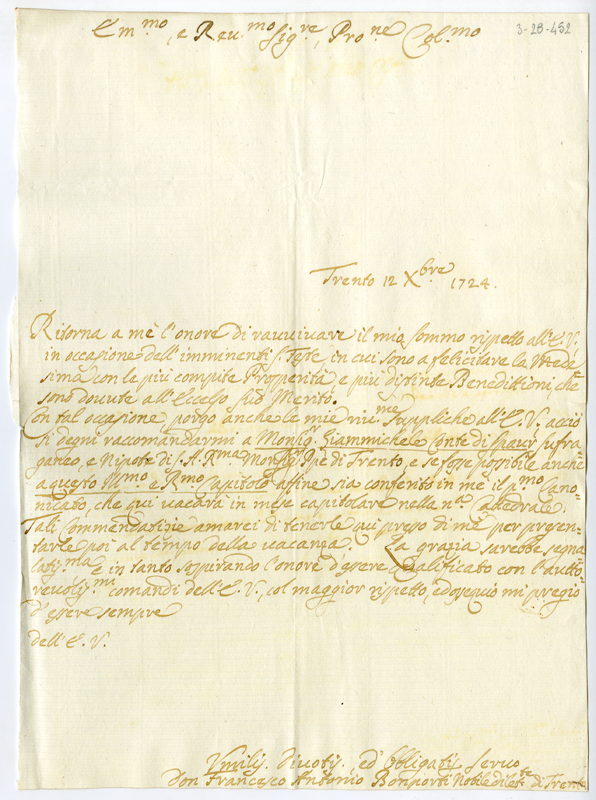 3-28-452
Em.mo, e Reu.mo Sig.re, Pro.ne Col.mo
Trento 12 Xbre 1724.
Ritorna a mè l'onore di rauuiuare il mio sommo rispetto all'E.V.
in occasione dell'imminenti S. Feste in cui sono a felicitare la Mede
sima con le più compite Prosperità, e più distinte Benedittioni, che
sono douute all'Eccelso suo Merito.
Con tal occasione porgo anche le mie riu.me Suppliche all'E.V. acciò
si degni raccomandarmi a Monsig.r Giammichele Conte di Spaur sufra,
ganeo, e Nipote di S.A.R.ma Monsig.r Ppe di Trento, e se fosse possibile anche
a questo Ill.mo e R.mo Capitolo affine sia conferito in mè il p.mo Cano,
nicato, che qui vacarà in mese capitolare nella n.ra Cattedrale.
Tali Commendatizie amarei di tenerle qui presso di mè per presen,
tarle poi al tempo della vacanza. La grazia sarebbe segna,
latis.ma e in tanto sospirando l'onore d'essere qualificato con l'autto,
reuolis.mi comandi dell'E.V., col maggior rispetto, ed ossequio mi pregio
d'essere sempre
dell'E.V.
Vmilis. diuotis. ed Obligatis. Seruo
Don Francesco Antonio Bonporti Nobile dilet.te di Trento